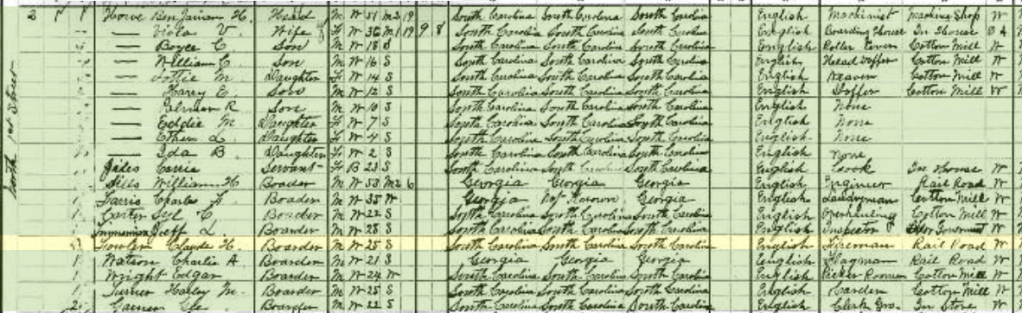 2 Howe Benjaman H. Head M W 51 M2 19 South Carolina South Carolina South Carolina English Machinist Machine Shop W
— Viola V. Wife F W 36 M1 19 9 8 South Carolina South Carolina South Carolina English Boarding House In House O A
— Boyce C. Son M W 18 S South Carolina South Carolina South Carolina English Roller Cotton Mill W
— William C. Son M W 16 S South Carolina South Carolina South Carolina English Head Doffer Cotton Mill W
— Lottie M. Daughter F W 14 S South Carolina South Carolina South Carolina English Weaver Cotton Mill W
— Harry E. Son M W 12 S South Carolina South Carolina South Carolina English Doffer Cotton Mill W
— Elmer R. Son M W 10 S South Carolina South Carolina South Carolina English None
— Eddie M. Daughter F W 7 S South Carolina South Carolina South Carolina English None
— L. Daughter F W 4 S South Carolina South Carolina South Carolina English None
— Ida B. Daughter F W 2 S South Carolina South Carolina South Carolina English None
Carrie Servant F B 23 S South Carolina South Carolina South Carolina English Cook In House W
William H. Boader M W 53 M2 6 Georgia Georgia Georgia English Engineer Rail Road W
Farris Charles Boader M W 35 W Georgia Not Known Georgia English Laundryman Cotton Mill W
Carter C. Boarder M W 22 S South Carolina South Carolina South Carolina English Overhauling Cotton Mill W
Jeff L. Boarder M W 28 S South Carolina South Carolina South Carolina English Inspector W
Fowler Claude H. Boarder M W 25 S South Carolina South Carolina South Carolina English Fireman Rail Road W
Watson Charlie A Boarder M W 21 S Georgia Georgia Georgia English Flagman Rail Road W
Wright Edgar Boarder M W 24 W South Carolina South Carolina South Carolina English Picker Cotton Mill W
Turner M. Boarder M W 25 S South Carolina South Carolina South Carolina English Carder Cotton Mill W
Boarder M W 22 S South Carolina South Carolina South Carolina English Clerk Gro. In Store W
North Street